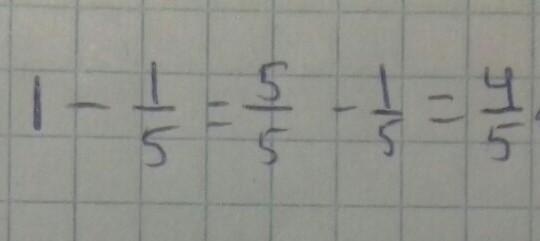 1 - 1/5 = 5/5 - 1/5 = 4/5.